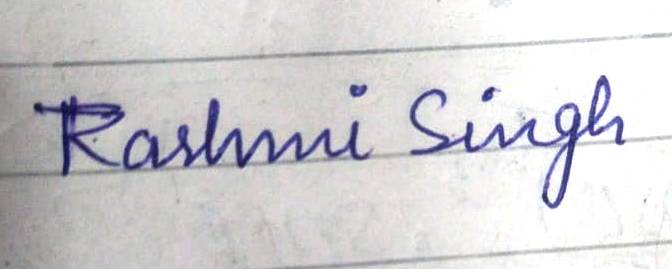 Rashmi Singh